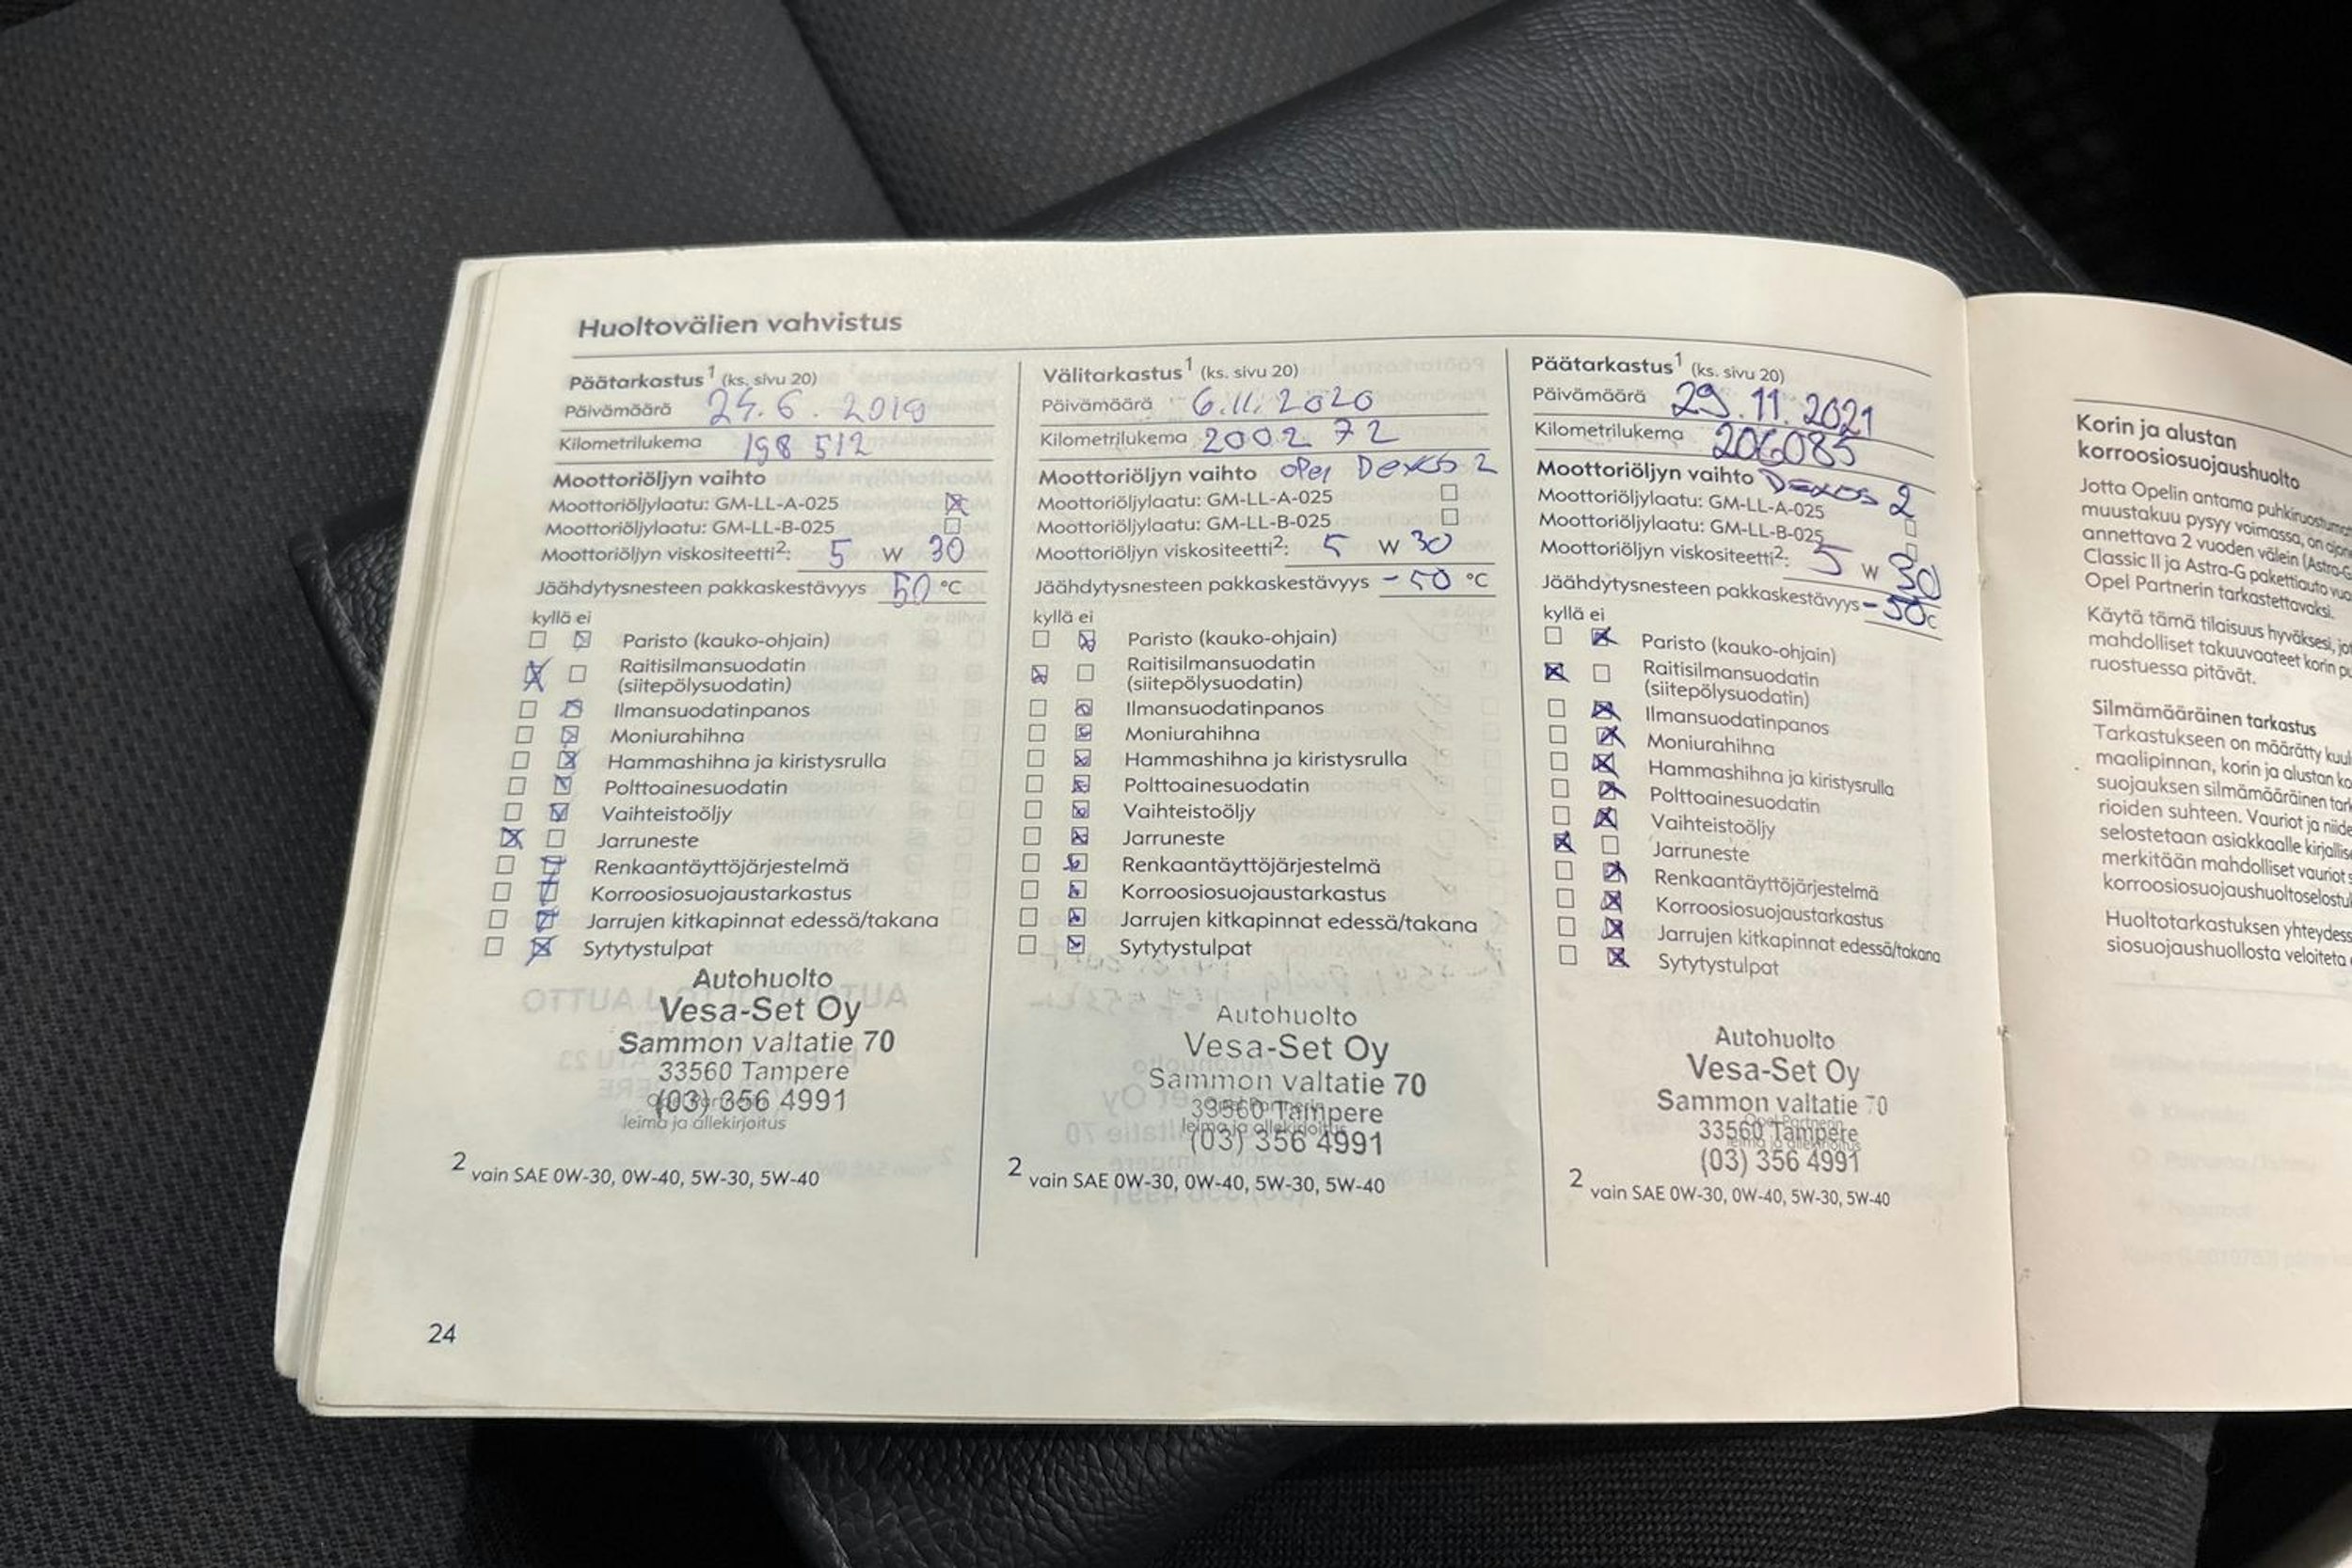 Huoltovälien vahvistus
Päätarkastus¹ (ks. sivu 20)
Päivämäärä 24.6.2019
Kilometrilukema 198 512
Moottoriöljyn vaihto
Moottoriöljylaatu: GM-LL-A-025
Moottoriöljylaatu: GM-LL-B-025
Moottoriöljyn viskositeetti²: 5 W 30
Jäähdytysnesteen pakkaskestävyys 50 °C
kyllä ei
Paristo (kauko-ohjain)
Raitisilmansuodatin
(siitepölysuodatin)
Ilmansuodatinpanos
Moniurahihna
Hammashihna ja kiristysrulla
Polttoainesuodatin
Vaihteistoöljy
Jarruneste
Renkaantäyttöjärjestelmä
Korroosiosuojaustarkastus
Jarrujen kitkapinnat edessä/takana
Sytytystulpat
Autohuolto
Vesa-Set Oy
Sammon valtatie 70
33560 Tampere
(03) 356 4991
Opel Partnerin
leima ja allekirjoitus
² vain SAE 0W-30, 0W-40, 5W-30, 5W-40
24
Välitarkastus¹ (ks. sivu 20)
Päivämäärä 6.11.2020
Kilometrilukema 200272
Moottoriöljyn vaihto Opel Dexos 2
Moottoriöljylaatu: GM-LL-A-025
Moottoriöljylaatu: GM-LL-B-025
Moottoriöljyn viskositeetti²: 5 W 30
Jäähdytysnesteen pakkaskestävyys -50 °C
kyllä ei
Paristo (kauko-ohjain)
Raitisilmansuodatin
(siitepölysuodatin)
Ilmansuodatinpanos
Moniurahihna
Hammashihna ja kiristysrulla
Polttoainesuodatin
Vaihteistoöljy
Jarruneste
Renkaantäyttöjärjestelmä
Korroosiosuojaustarkastus
Jarrujen kitkapinnat edessä/takana
Sytytystulpat
Autohuolto
Vesa-Set Oy
Sammon valtatie 70
Opel Partnerin
33560 Tampere
leima ja allekirjoitus
(03) 356 4991
² vain SAE 0W-30, 0W-40, 5W-30, 5W-40
Päätarkastus¹ (ks. sivu 20)
Päivämäärä 29.11.2021
Kilometrilukema 206085
Moottoriöljyn vaihto Dexos 2
Moottoriöljylaatu: GM-LL-A-025
Moottoriöljylaatu: GM-LL-B-025
Moottoriöljyn viskositeetti²: 5 W 30
Jäähdytysnesteen pakkaskestävyys -50 °C
kyllä ei
Paristo (kauko-ohjain)
Raitisilmansuodatin
(siitepölysuodatin)
Ilmansuodatinpanos
Moniurahihna
Hammashihna ja kiristysrulla
Polttoainesuodatin
Vaihteistoöljy
Jarruneste
Renkaantäyttöjärjestelmä
Korroosiosuojaustarkastus
Jarrujen kitkapinnat edessä/takana
Sytytystulpat
Autohuolto
Vesa-Set Oy
Sammon valtatie 70
Opel Partnerin
33560 Tampere
leima ja allekirjoitus
(03) 356 4991
² vain SAE 0W-30, 0W-40, 5W-30, 5W-40
Korin ja alustan
korroosiosuojaushuolto
Jotta Opelin antama
muustakuu pysyy voimassa, on
annettava 2 vuoden välein (Astra-G
Classic II ja Astra-G pakettiauto
Opel Partnerin tarkastettavaksi.
Käytä tämä tilaisuus hyväksesi,
mahdolliset takuuvaateet korin
ruostuessa pitävät.
Silmämääräinen tarkastus
Tarkastukseen on määrätty
maalipinnan, korin ja alustan
suojauksen silmämääräinen
rioiden suhteen. Vauriot ja
selostetaan asiakkaalle
merkitään mahdolliset vauriot
Huoltotarkastuksen
siosuojaushuollosta veloiteta